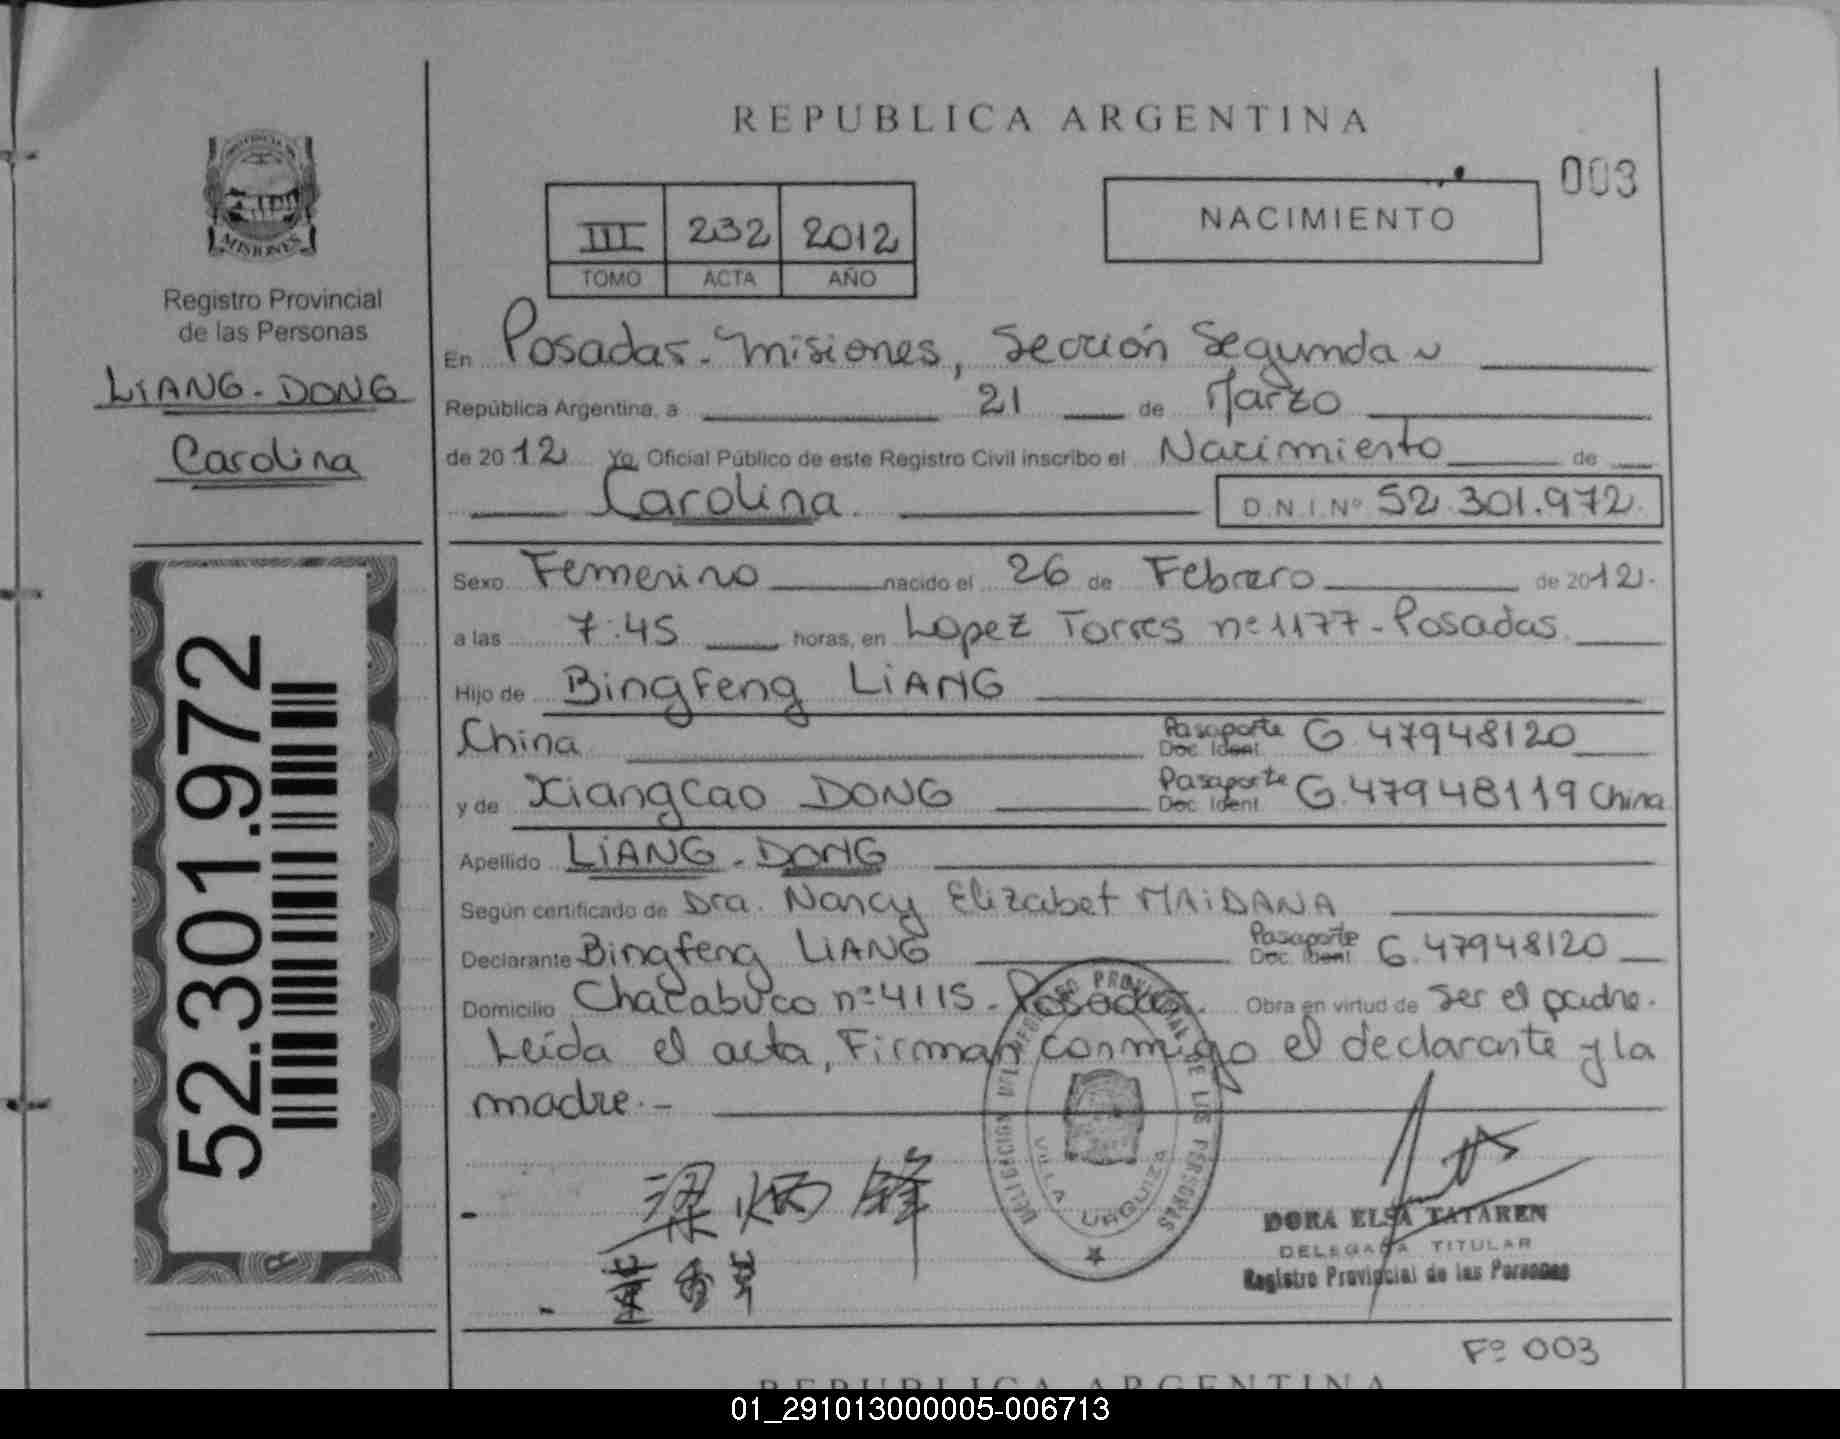 REPUBLICA ARGENTINA
003
NACIMIENTO
III 232 2012
TOMO ACTA AÑO
PROVINCIA DE
MISIONES
Registro Provincial
de las Personas
LIANG - DONG
Carolina
52.301.972
En Posadas - Misiones, Sección Segunda
República Argentina, a 21 de Marzo
de 2012 Yo, Oficial Público de este Registro Civil inscribo el Nacimiento de
Carolina D.N.I. Nº 52.301.972.
Sexo Femenino nacido el 26 de Febrero de 2012.
a las 7:45 horas, en Lopez Torres nº 1177 - Posadas.
Hijo de Bingfeng LIANG
China Pasaporte Doc. Ident. G 47948120
y de Xiangcao DONG Pasaporte Doc. Ident. G.47948119 China
Apellido LIANG - DONG
Según certificado de Dra. Nancy Elizabet MAIDANA
Declarante Bingfeng LIANG Pasaporte Doc. Ident G.47948120
Domicilio Chacabuco nº 4115 - Posadas. Obra en virtud de ser el padre.
Leída el acta, Firman conmigo el declarante y la
madre. -
DELEGACION DEL REGISTRO PROVINCIAL DE LAS PERSONAS
VILLA URQUIZA
梁炳锋
董香草
DORA ELSA TATAREN
DELEGADA TITULAR
Registro Provincial de las Personas
Fº 003
REPUBLICA ARGENTINA
01_291013000005-006713